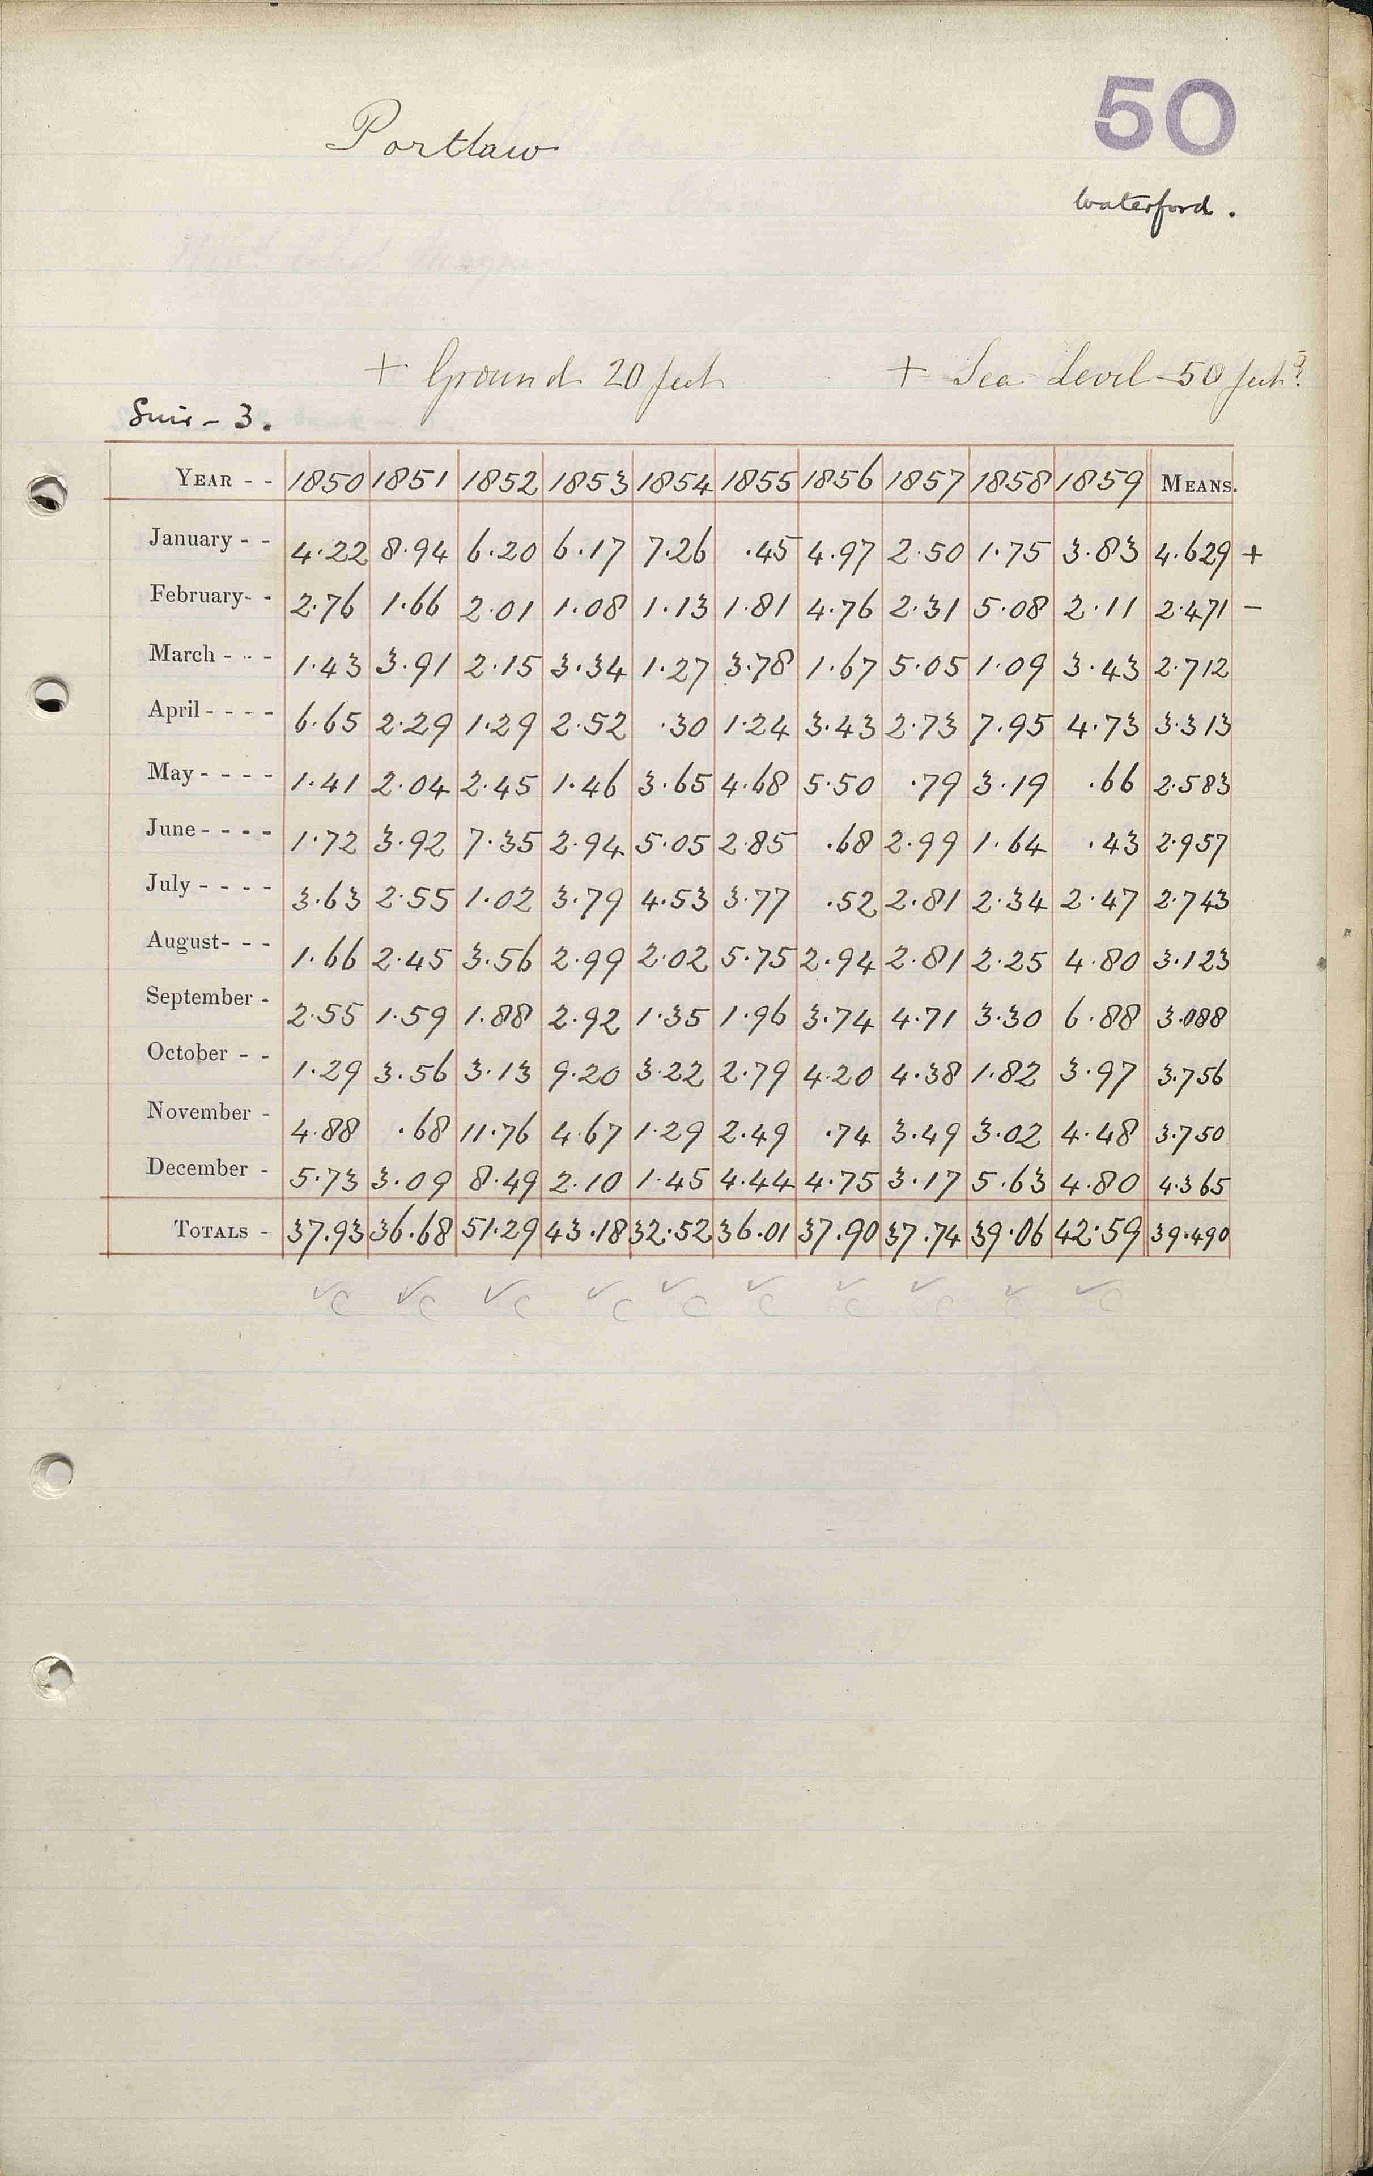 50
Portlaw
Waterford.
+ Ground 20 feet + Sea Level 50 feet?
Suir - 3.
YEAR - - 1850 1851 1852 1853 1854 1855 1856 1857 1858 1859 MEANS.
January - - 4.22 8.94 6.20 6.17 7.26 .45 4.97 2.50 1.75 3.83 4.629 +
February - - 2.76 1.66 2.01 1.08 1.13 1.81 4.76 2.31 5.08 2.11 2.471 -
March - - - 1.43 3.91 2.15 3.34 1.27 3.78 1.67 5.05 1.09 3.43 2.712
April - - - - 6.65 2.29 1.29 2.52 .30 1.24 3.43 2.73 7.95 4.73 3.313
May - - - - 1.41 2.04 2.45 1.46 3.65 4.68 5.50 .79 3.19 .66 2.583
June - - - - 1.72 3.92 7.35 2.94 5.05 2.85 .68 2.99 1.64 .43 2.957
July - - - - 3.63 2.55 1.02 3.79 4.53 3.77 .52 2.81 2.34 2.47 2.743
August - - - 1.66 2.45 3.56 2.99 2.02 5.75 2.94 2.81 2.25 4.80 3.123
September - 2.55 1.59 1.88 2.92 1.35 1.96 3.74 4.71 3.30 6.88 3.088
October - - 1.29 3.56 3.13 9.20 3.22 2.79 4.20 4.38 1.82 3.97 3.756
November - 4.88 .68 11.76 4.67 1.29 2.49 .74 3.49 3.02 4.48 3.750
December - 5.73 3.09 8.49 2.10 1.45 4.44 4.75 3.17 5.63 4.80 4.365
TOTALS - 37.93 36.68 51.29 43.18 32.52 36.01 37.90 37.74 39.06 42.59 39.490
✓c ✓c ✓c ✓c ✓c ✓c ✓c ✓c ✓c ✓c